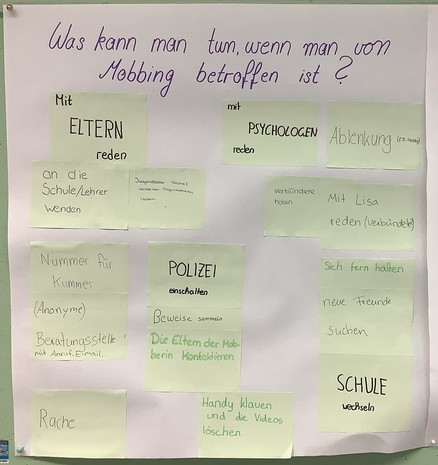 Was kann man tun, wenn man von
Mobbing betroffen ist?
Mit
ELTERN
reden
mit
PSYCHOLOGEN
reden
Ablenkung
an die
Schule/Lehrer
wenden
verbündete
holen
Mit Lisa
reden (Verbündete)
Nummer für
Kummer
(Anonyme)
Beratungsstelle
mit Anruf, E-mail.
POLIZEI
einschalten
Beweise sammeln
Die Eltern der Mob-
berin Kontaktieren
Sich fern halten
neue Freunde
suchen
SCHULE
wechseln
Rache
Handy klauen
und die Videos
löschen